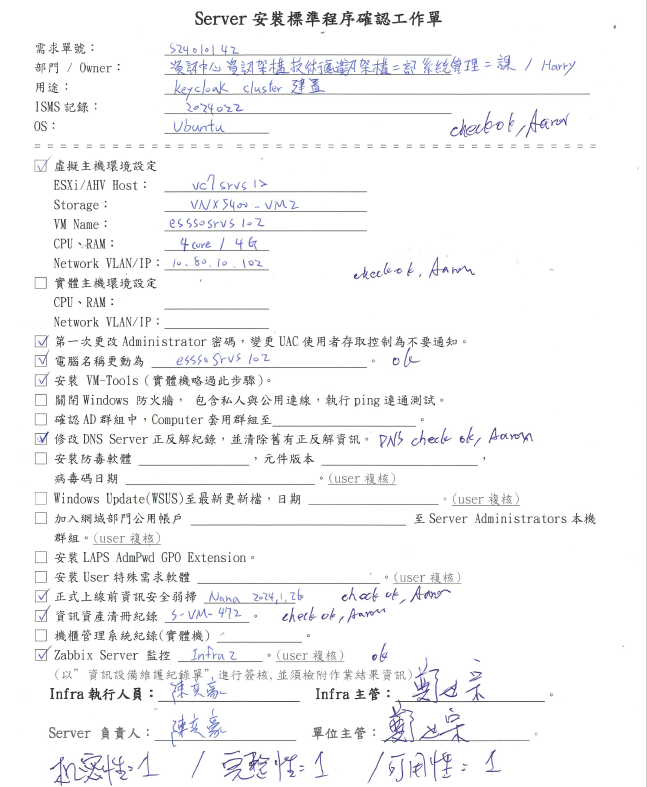 Server 安裝標準程序確認工作單
需求單號： S24010142
部門 / Owner： 資訊中心 資訊架構技術處 架構二部 系統管理二課 / Harry
用途： keycloak cluster 建置
ISMS 記錄： 2024022
OS： Ubuntu check ok, Aaron
☑ 虛擬主機環境設定
ESXi/AHV Host： vc7srvs12
Storage： VNX5400-VM2
VM Name： esssosrvs102
CPU、RAM： 4 core / 4G
Network VLAN/IP： 10.80.10.102
check ok, Aaron
☐ 實體主機環境設定
CPU、RAM：
Network VLAN/IP：
☑ 第一次更改 Administrator 密碼，變更 UAC 使用者存取控制為不要通知。
☑ 電腦名稱更動為 esssosrvs102 。 ok
☑ 安裝 VM-Tools (實體機略過此步驟)。
☐ 關閉 Windows 防火牆， 包含私人與公用連線，執行 ping 連通測試。
☐ 確認 AD 群組中，Computer 套用群組至 。
☑ 修改 DNS Server 正反解紀錄，並清除舊有正反解資訊。 DNS check ok, Aaron
☐ 安裝防毒軟體 ，元件版本 ，
病毒碼日期 。(user 複核)
☐ Windows Update(WSUS)至最新更新檔，日期 。(user 複核)
☐ 加入網域部門公用帳戶 至 Server Administrators 本機
群組。(user 複核)
☐ 安裝 LAPS AdmPwd GPO Extension。
☐ 安裝 User 特殊需求軟體 。(user 複核)
☑ 正式上線前資訊安全弱掃 Nana 2024,1,26 check ok, Aaron
☑ 資訊資產清冊紀錄 S-VM-472 。 check ok, Aaron
☐ 機櫃管理系統紀錄(實體機) 。
☑ Zabbix Server 監控 Infra2 。(user 複核) ok
(以" 資訊設備維護紀錄單", 進行簽核, 並須檢附作業結果資訊)
Infra 執行人員： 陳奕豪 Infra 主管： 鄭 宗 。
Server 負責人： 陳奕豪 單位主管： 鄭 宗 。
机密性=1 / 完整性=1 / 可用性=1